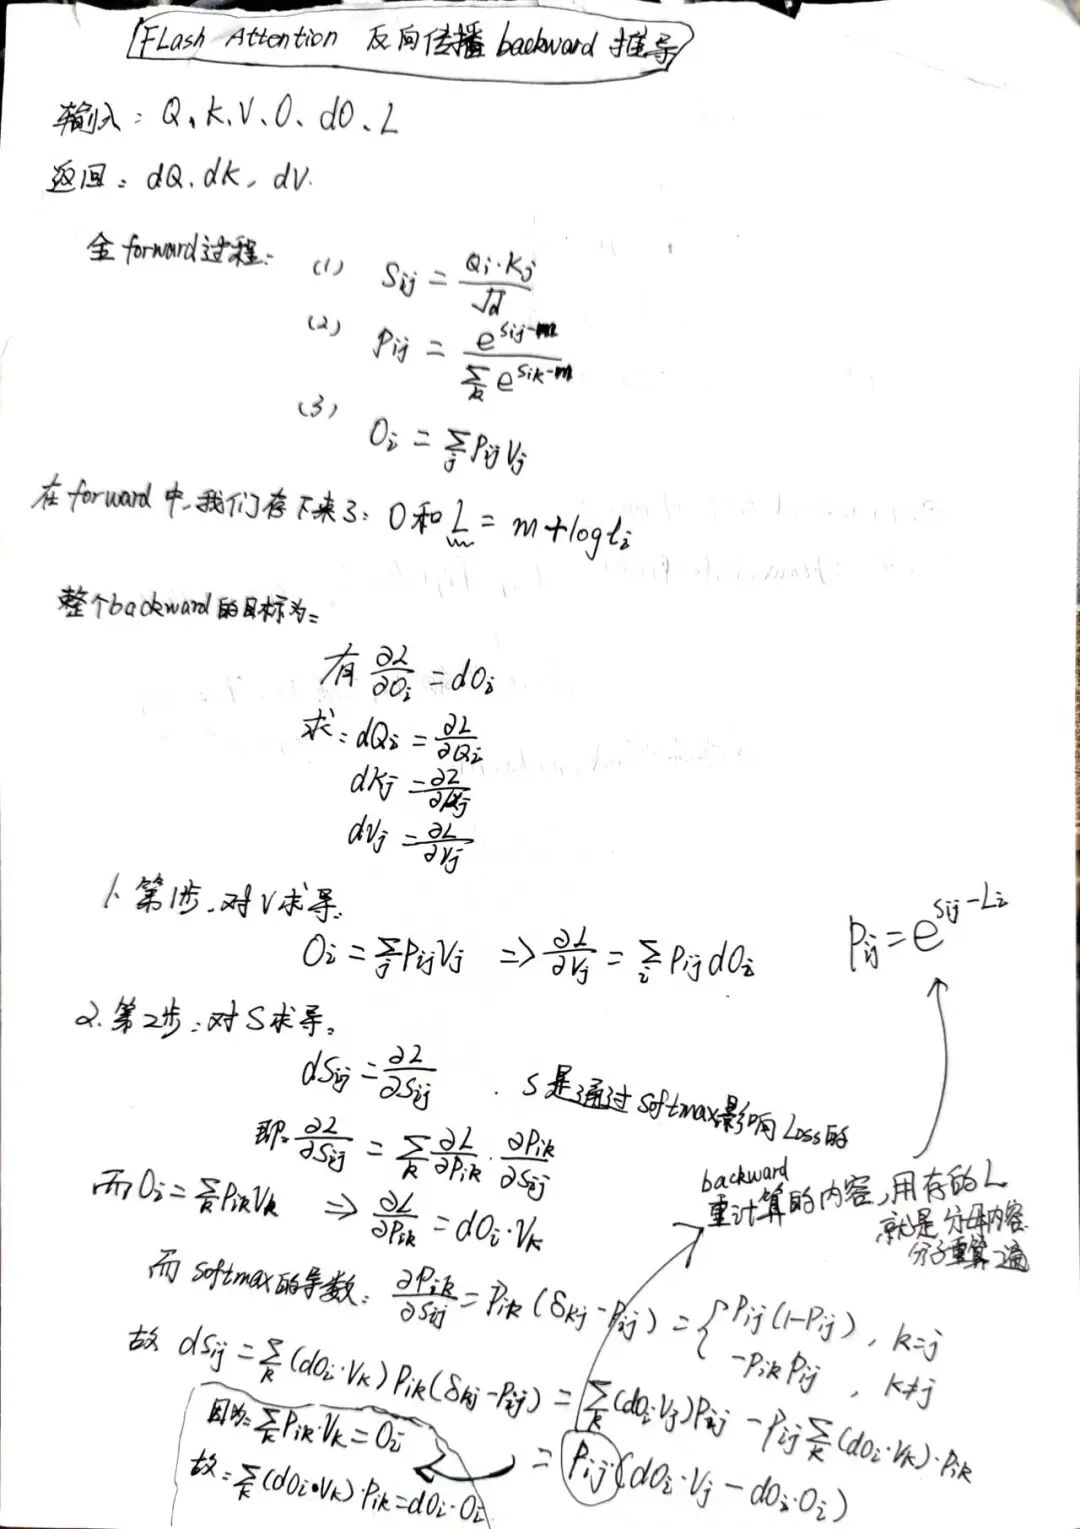 FLash Attention 反向传播 backward 推导
输入: Q、K、V、O、dO、L
返回: dQ、dK、dV.
全forward过程:
(1) Sij = Qi·Kj / √d
(2) Pij = e^(Sij-m) / Σ_k e^(Sik-m)
(3) Oi = Σ_j Pij Vj
在forward中,我们存下来了: O和L = m+logℓi
整个backward的目标为:
有 ∂L/∂Oi = dOi
求: dQi = ∂L/∂Qi
dKj = ∂L/∂Kj
dVj = ∂L/∂Vj
1. 第1步、对V求导.
Oi = Σ_j Pij Vj => ∂L/∂Vj = Σ_i Pij dOi
Pij = e^(Sij-Li)
2. 第2步: 对S求导.
dSij = ∂L/∂Sij . S是通过softmax影响Loss的
即: ∂L/∂Sij = Σ_k ∂L/∂Pik · ∂Pik/∂Sij
backward
重计算的内容,用存的L
就是分母内容
分子重算一遍
而Oi = Σ_k Pik Vk => ∂L/∂Pik = dOi·Vk
而softmax的导数: ∂Pik/∂Sij = Pik(δkj-Pij) = { Pij(1-Pij), k=j
-Pik Pij, k≠j
故 dSij = Σ_k (dOi·Vk) Pik(δkj-Pij) = Σ_k (dOi·Vj)Pij - Pij Σ_k (dOi·Vk)·Pik
因为: Σ_k Pik·Vk = Oi
= Pij(dOi·Vj - dOi·Oi)
故: Σ_k (dOi·Vk)·Pik = dOi·Oi